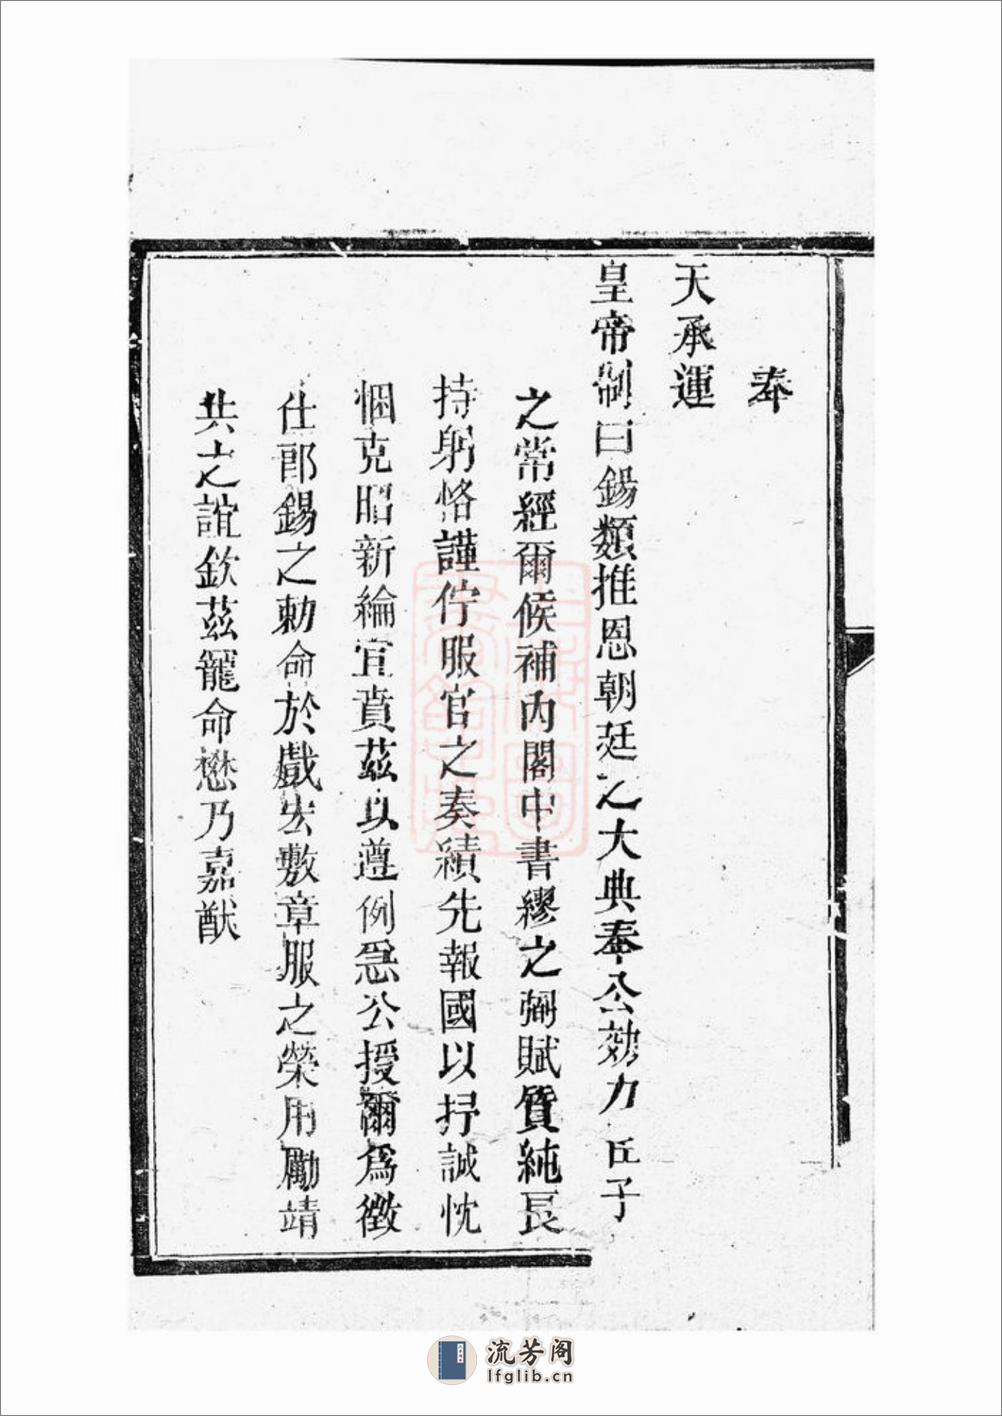 奉
天承運
皇帝制曰錫類推恩朝廷之大典奉公効力臣子
之常經爾候補內閣中書繆之弼賦質純良
持躬恪謹佇服官之奏績先報國以抒誠忱
悃克昭新綸宜賁茲以遵例急公授爾爲徵
仕郎錫之勅命於戲宏敷章服之榮用勵靖
共之誼欽茲寵命懋乃嘉猷
流芳阁
lfglib.cn